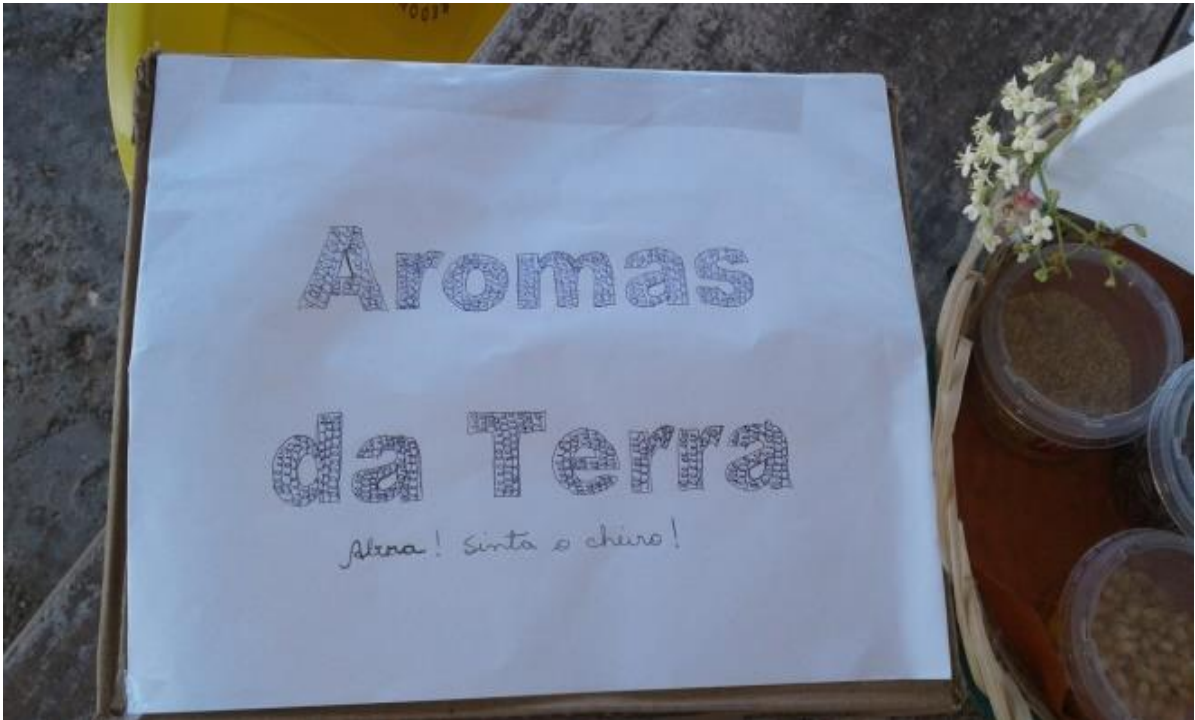 Aromas
da Terra
Abra! Sinta o cheiro!